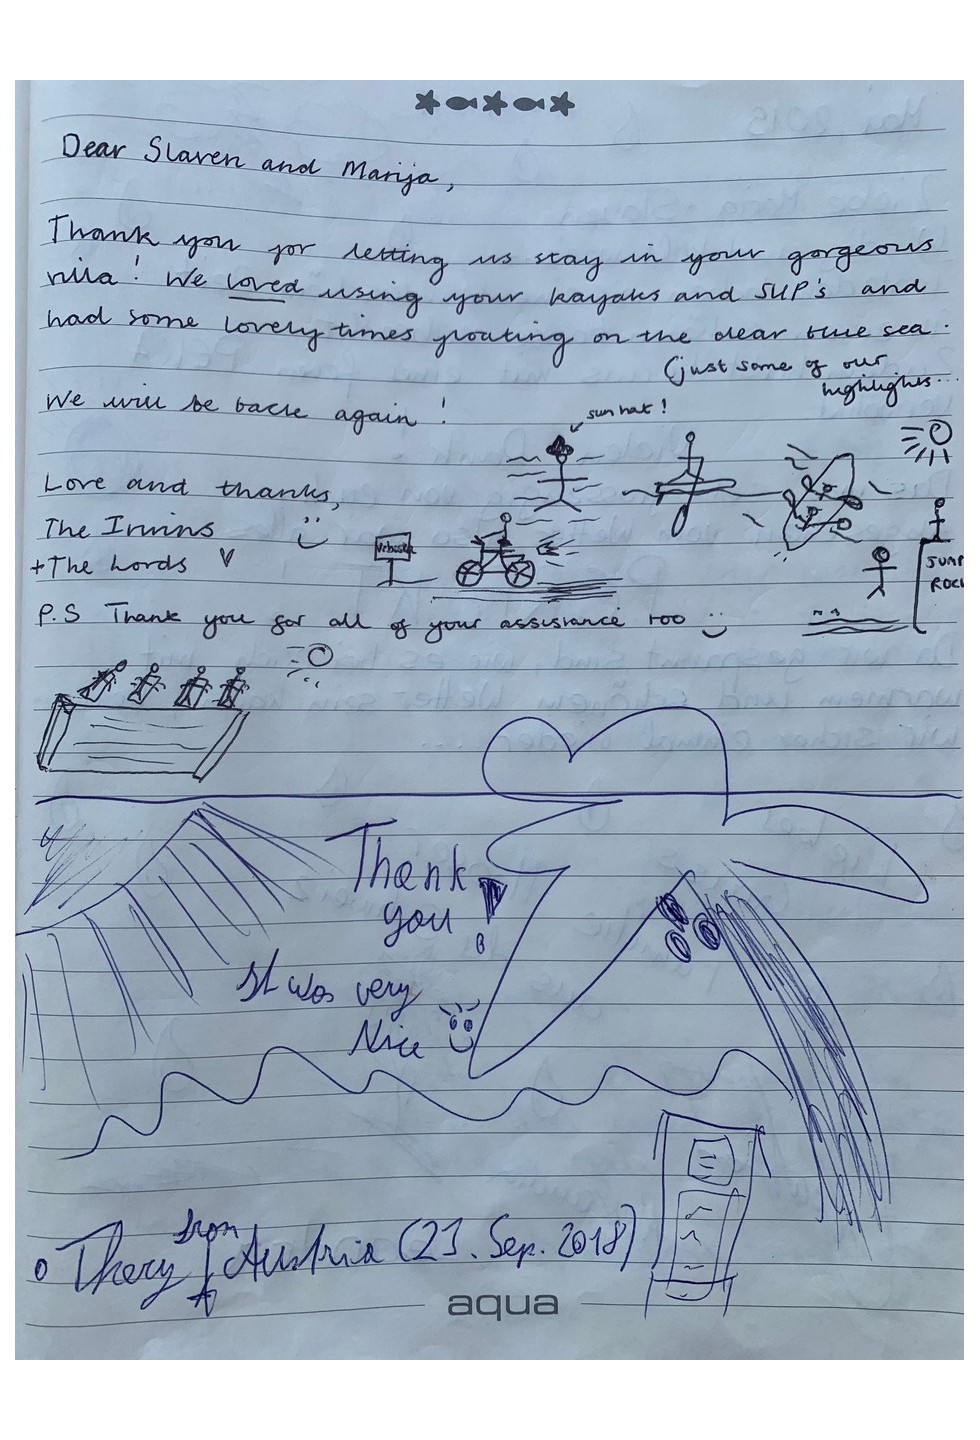 Dear Slaven and Marija,
Thank you for letting us stay in your gorgeous
villa! We loved using your kayaks and SUP's and
had some lovely times floating on the clear blue sea.
(just some of our
highlights...
We will be back again!
sun hat!
Love and thanks,
The Irwins
+The Lords
Vrboska
JUMP
ROCK
P.S Thank you for all of your assistance too
Thank
you!
It was very
Nice
from
Austria (23. Sep. 2018)
aqua